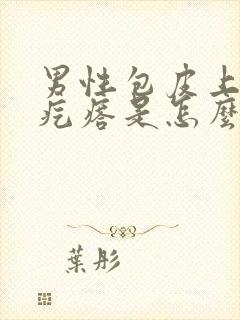 男性包皮上
疙瘩是怎麼
葉彤